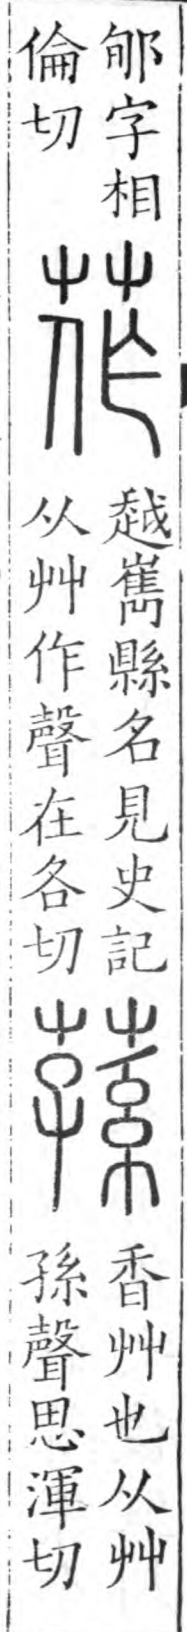 郇字相
倫切
莋
越嶲縣名見史記
从艸作聲在各切
蓀
香艸也从艸
孫聲思渾切